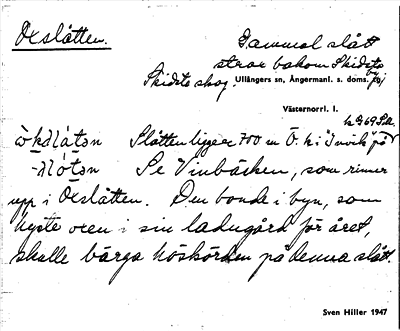 Oxslåtten.
Gammal slått
strax bakom Skidsta by i
Skidsta skog. Ullångers sn, Ångermanl. s. doms.
Västernorrl. l.
Slåtten ligger 700 m Ö. k: i "nvik" på
Se Vinbäcken, som rinner
upp i Oxslåtten. Den bonde i byn, som
hyste oxen i sin ladugård för året,
skulle bärga höskörden på denna slått.
Sven Hiller 1947